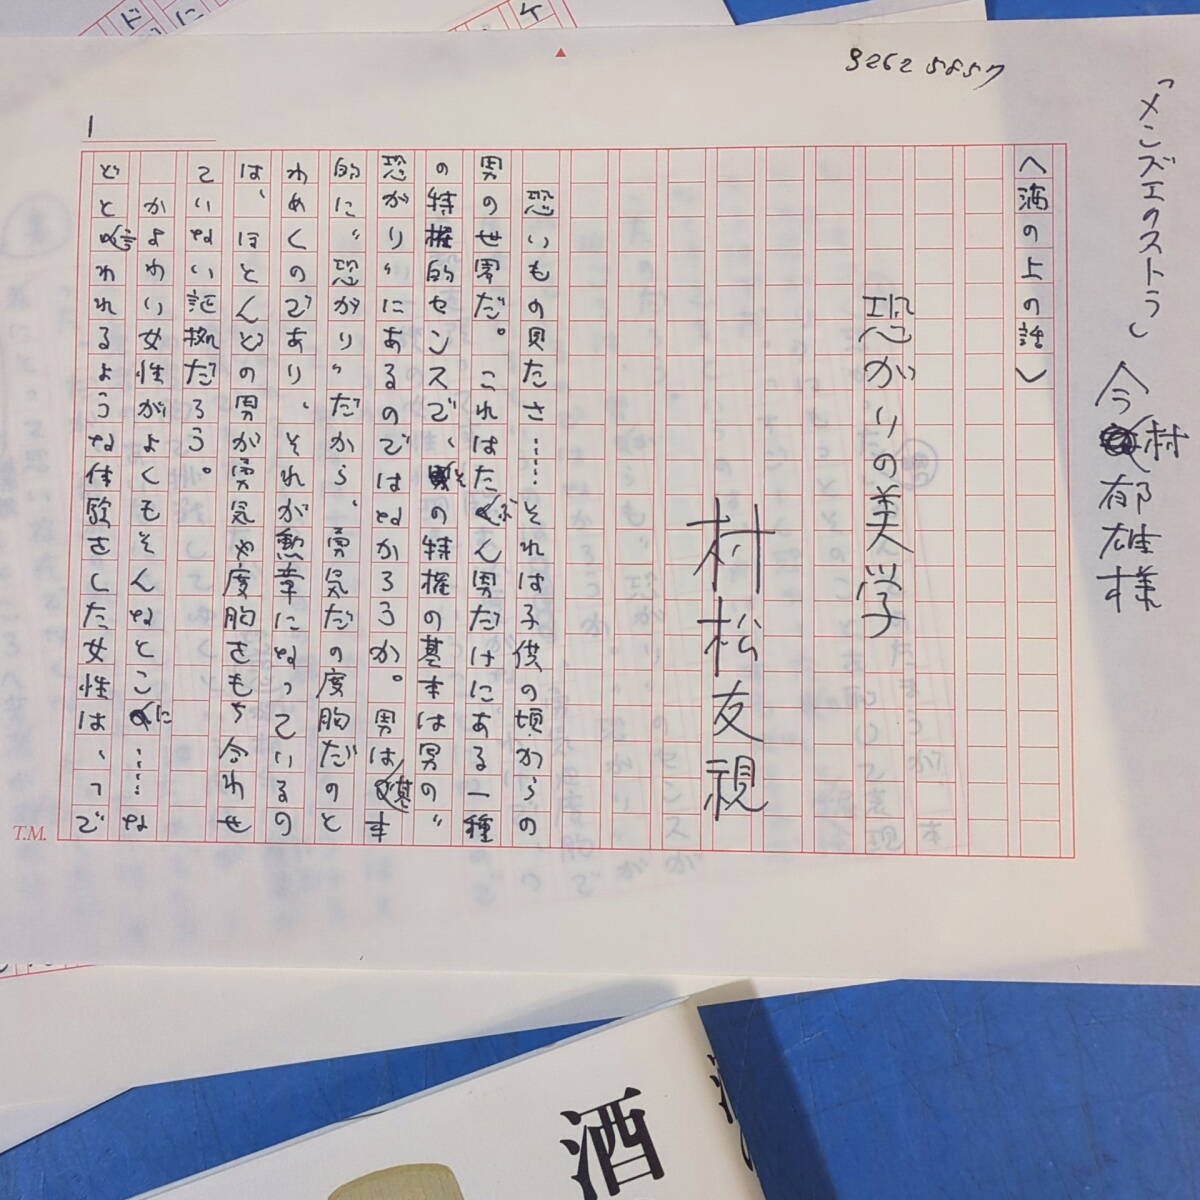 3262 5857
「メンズエクストラ」 今村郁雄様
1
〈酒の上の話〉
恐がりの美学
村松友視
恐いもの見たさ……それは子供の頃からの
男の世界だ。これはたぶん男だけにある一種
の特権的センスで、その特権の基本は男の〝
恐がり〟にあるのではなかろうか。男は基本
的に〝恐がり〟だから、勇気だの度胸だのと
わめくのであり、それが勲章になっているの
は、ほとんどの男が勇気や度胸をもち合わせ
ていない証拠だろう。
かよわい女性がよくもそんなとこに……な
どと言われるような体験をした女性は、って
T.M.
酒